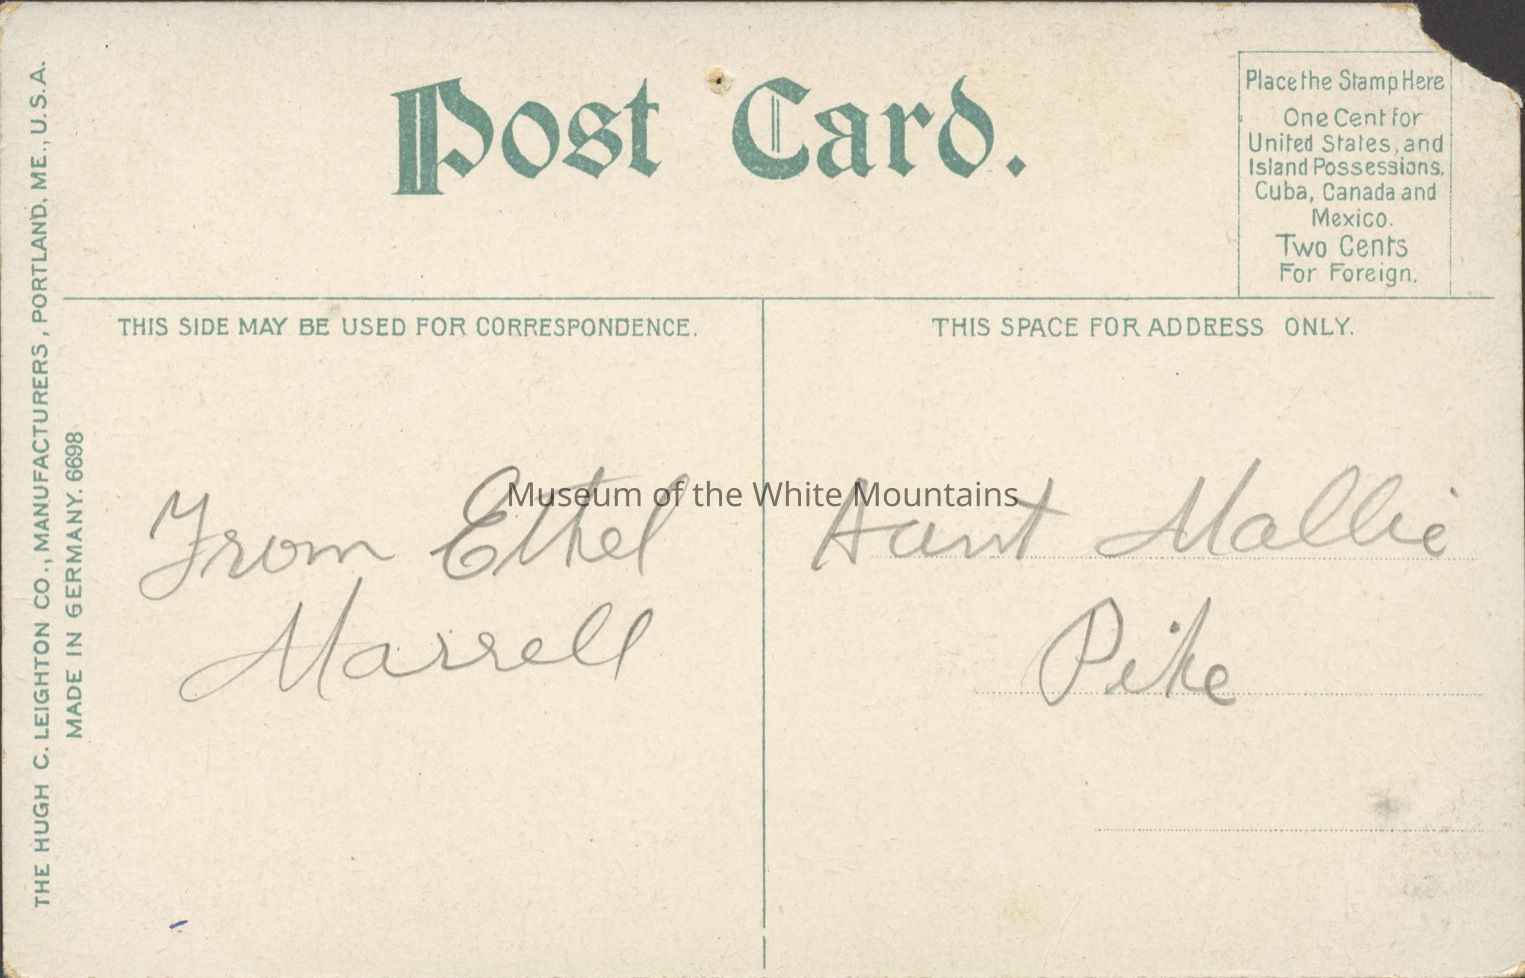 Post Card.
Place the Stamp Here
One Cent for
United States, and
Island Possessions,
Cuba, Canada and
Mexico.
Two Cents
For Foreign.
THE HUGH C. LEIGHTON CO., MANUFACTURERS, PORTLAND, ME., U.S.A.
MADE IN GERMANY. 6698
THIS SIDE MAY BE USED FOR CORRESPONDENCE.
From Ethel
Marrell
THIS SPACE FOR ADDRESS ONLY.
Aunt Mallie
Pike
Museum of the White Mountains